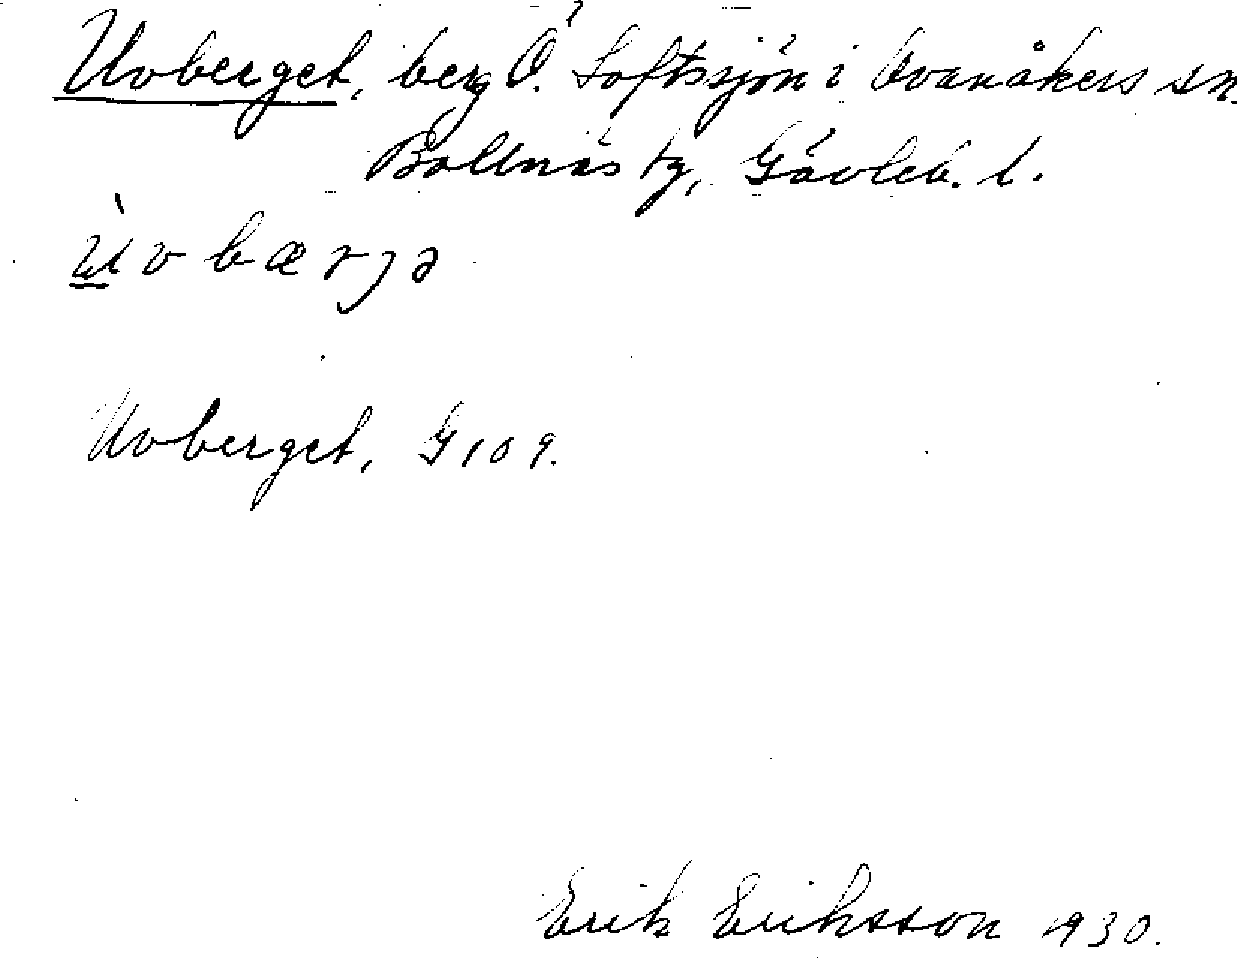 Uvberget, berg Ö. Loftssjön i Ovanåkers sn.
Bollnäs tg, Gävleb. l.
ùvbærjə
Uvberget, G 109.
Erik Eriksson 1930.